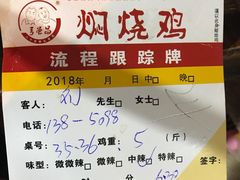 焖烧鸡
流程跟踪牌
2018年 月 日 中□ 晚□
客人: 刘 先生□ 女士□
电话: 138-5098
桌号: 35-36 鸡重: 5 (斤)
味型: 微微辣□ 微辣□ 中辣□ 特辣□ 签字:
时 分